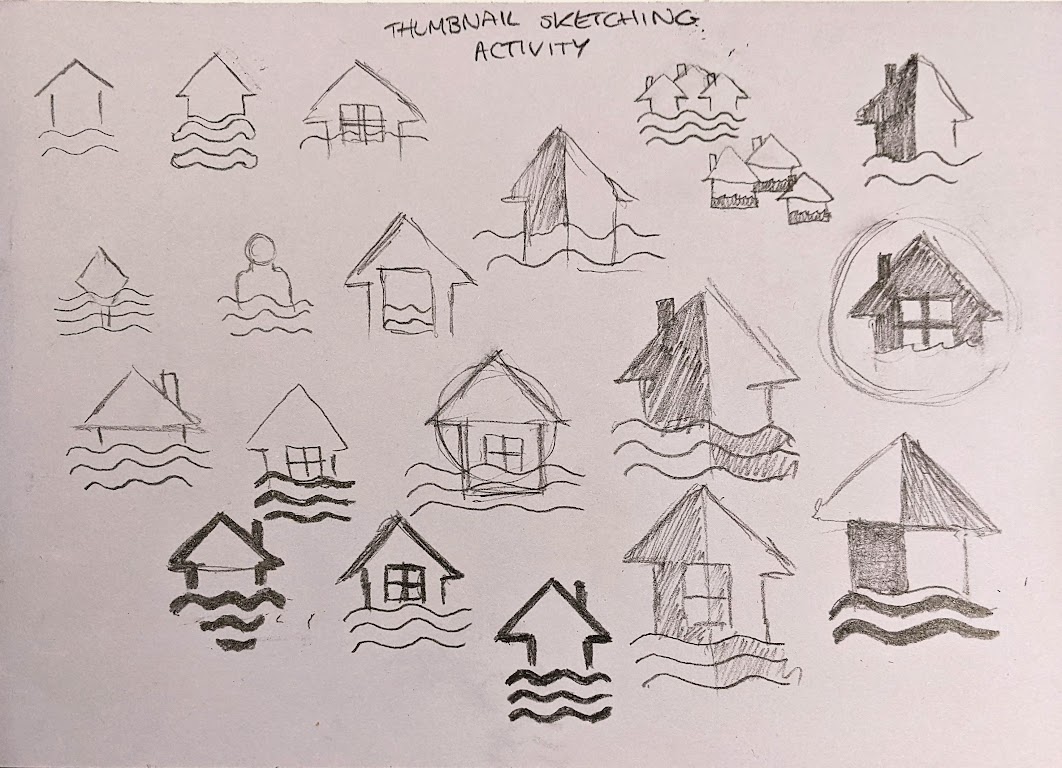 THUMBNAIL SKETCHING
ACTIVITY